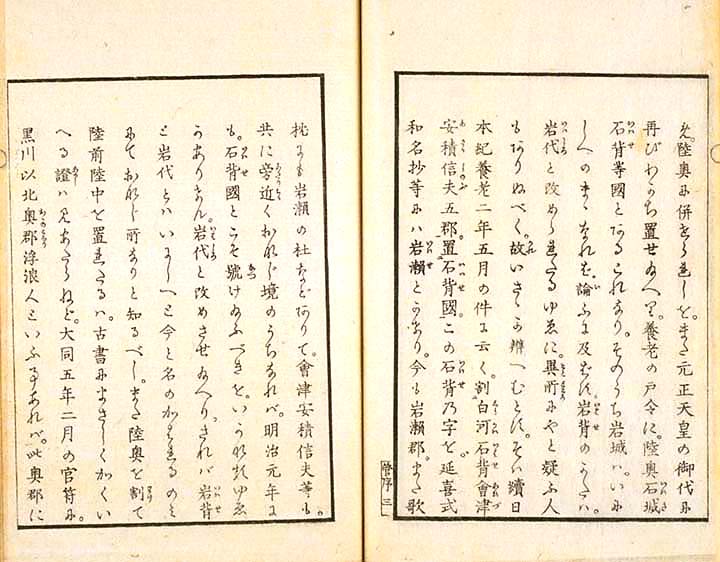 陸奥に併せられしを。また元正天皇の御代に
再びわかち置せ給へり。養老の戸令に。陸奥石城
石背等國とあるこれなり。そのうち岩城ハ。いに
しへのまゝなれば。論ふに及ばず。岩背のかたハ。
岩代と改められたるゆゑに。異所にやと疑ふ人
もありぬべく。故いさゝか辨へむとす。そハ續日
本紀養老二年五月の件に云く。割白河石背會津
安積信夫五郡。置石背國。この石背乃字を。延喜式
和名抄等にハ岩瀬とかけり。今も岩瀬郡。また歌
序 三
枕にも岩瀬の杜などありて。會津安積信夫等も。
共に旁近くおなじ境のうちなれバ。明治元年に
も。石背國とこそ號け給ふべきを。いかなるゆゑ
かありけん。岩代と改めさせ給へり。されバ岩背
と岩代とハいにしへと今と名のかはれるのミ
にておなじ所なりと知るべし。また陸奥を割て
陸前陸中を置れたるハ。古書にまさしくかくい
へる證ハ見あたらねど。大同五年二月の官符に。
黒川以北奥郡浮浪人といふ事あれバ。此奥郡に